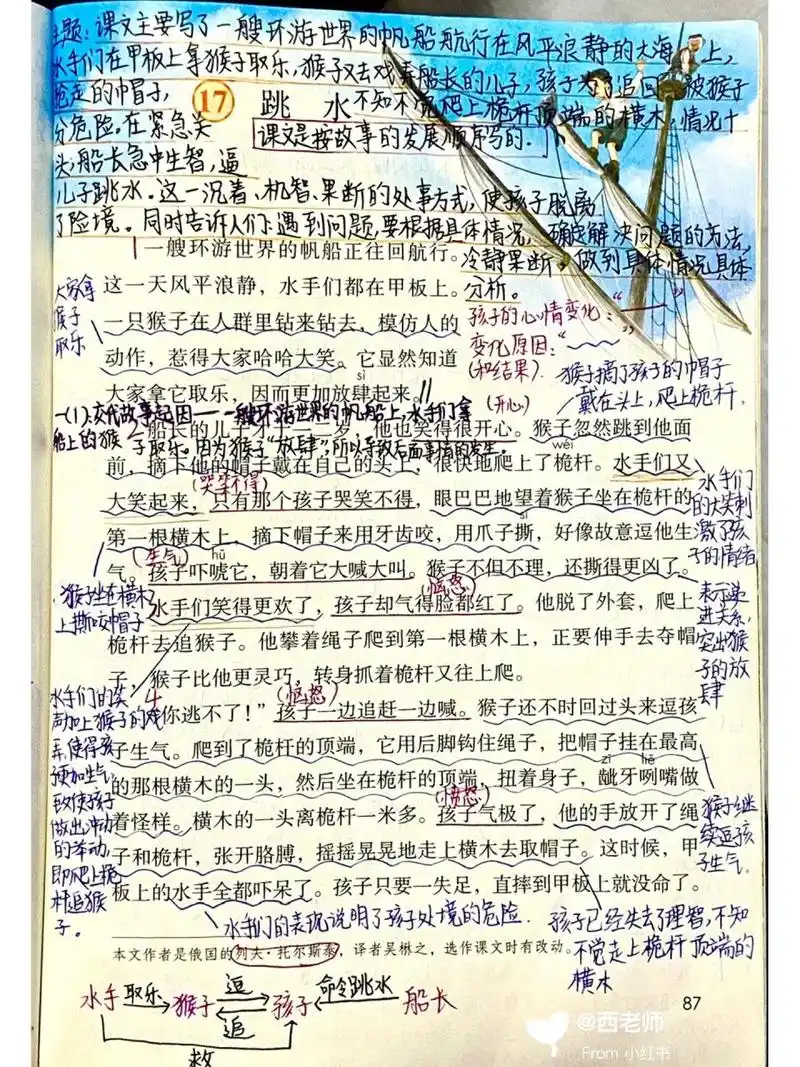 主题:课文主要写了一艘环游世界的帆船航行在风平浪静的大海上,
水手们在甲板上拿猴子取乐,猴子又去戏弄船长的儿子,孩子为了追回被猴子
抢走的帽子,
不知不觉爬上桅杆顶端的横木,情况十
分危险。在紧急关
头,船长急中生智,逼
儿子跳水。这一沉着、机智、果断的处事方式,使孩子脱离
了险境。同时告诉人们:遇到问题,要根据具体情况,确定解决问题的方法,
冷静果断,做到具体情况具体
分析。
17 跳水
课文是按故事的发展顺序写的.
孩子的心情变化:“——”
变化原因:“
(和结果).
一艘环游世界的帆船正往回航行。
这一天风平浪静,水手们都在甲板上。
一只猴子在人群里钻来钻去,模仿人的
动作,惹得大家哈哈大笑。它显然知道
sì
大家拿它取乐,因而更加放肆起来。
大家拿
猴子
取乐
一(1).交代故事起因——一艘环游世界的帆船上,水手们拿
船上的猴子取乐。因为猴子“放肆”,所以导致后面事情的发生.
猴子摘了孩子的帽子
戴在头上,爬上桅杆.
(开心)
他也笑得很开心。猴子忽然跳到他面
wéi
前,摘下他的帽子戴在自己的头上,很快地爬上了桅杆。水手们又
(哭笑不得)
大笑起来,只有那个孩子哭笑不得,眼巴巴地望着猴子坐在桅杆的
sī
第一根横木上,摘下帽子来用牙齿咬,用爪子撕,好像故意逗他生
(生气)
hǔ
气。孩子吓唬它,朝着它大喊大叫。猴子不但不理,还撕得更凶了。
(恼怒)
水手们笑得更欢了,孩子却气得脸都红了。他脱了外套,爬上
桅杆去追猴子。他攀着绳子爬到第一根横木上,正要伸手去夺帽
子,猴子比他更灵巧,转身抓着桅杆又往上爬。
水手们
的大笑刺
激了孩
子的情绪
表示递
进关系,
突出猴
子的放
肆
猴子坐在横木
上撕咬帽子
(恼怒)
你逃不了!”孩子一边追赶一边喊。猴子还不时回过头来逗孩
子生气。爬到了桅杆的顶端,它用后脚钩住绳子,把帽子挂在最高
zī liě
的那根横木的一头,然后坐在桅杆的顶端,扭着身子,龇牙咧嘴做
(愤怒)
着怪样。横木的一头离桅杆一米多。孩子气极了,他的手放开了绳
子和桅杆,张开胳膊,摇摇晃晃地走上横木去取帽子。这时候,甲
板上的水手全都吓呆了。孩子只要一失足,直摔到甲板上就没命了。
水手们的笑
声加上猴子的戏
弄,使得孩
子更加生气,
致使孩子
做出冲动
的举动,
即爬上桅
杆追猴
子.
猴子继
续逗孩
子生气.
水手们的表现说明了孩子处境的危险.
孩子已经失去了理智,不知
不觉走上桅杆顶端的
横木
本文作者是俄国的列夫·托尔斯泰,译者吴楙之,选作课文时有改动。
水手 取乐 猴子 逗 孩子 命令跳水 船长
追
救
87
@西老师
From 小红书